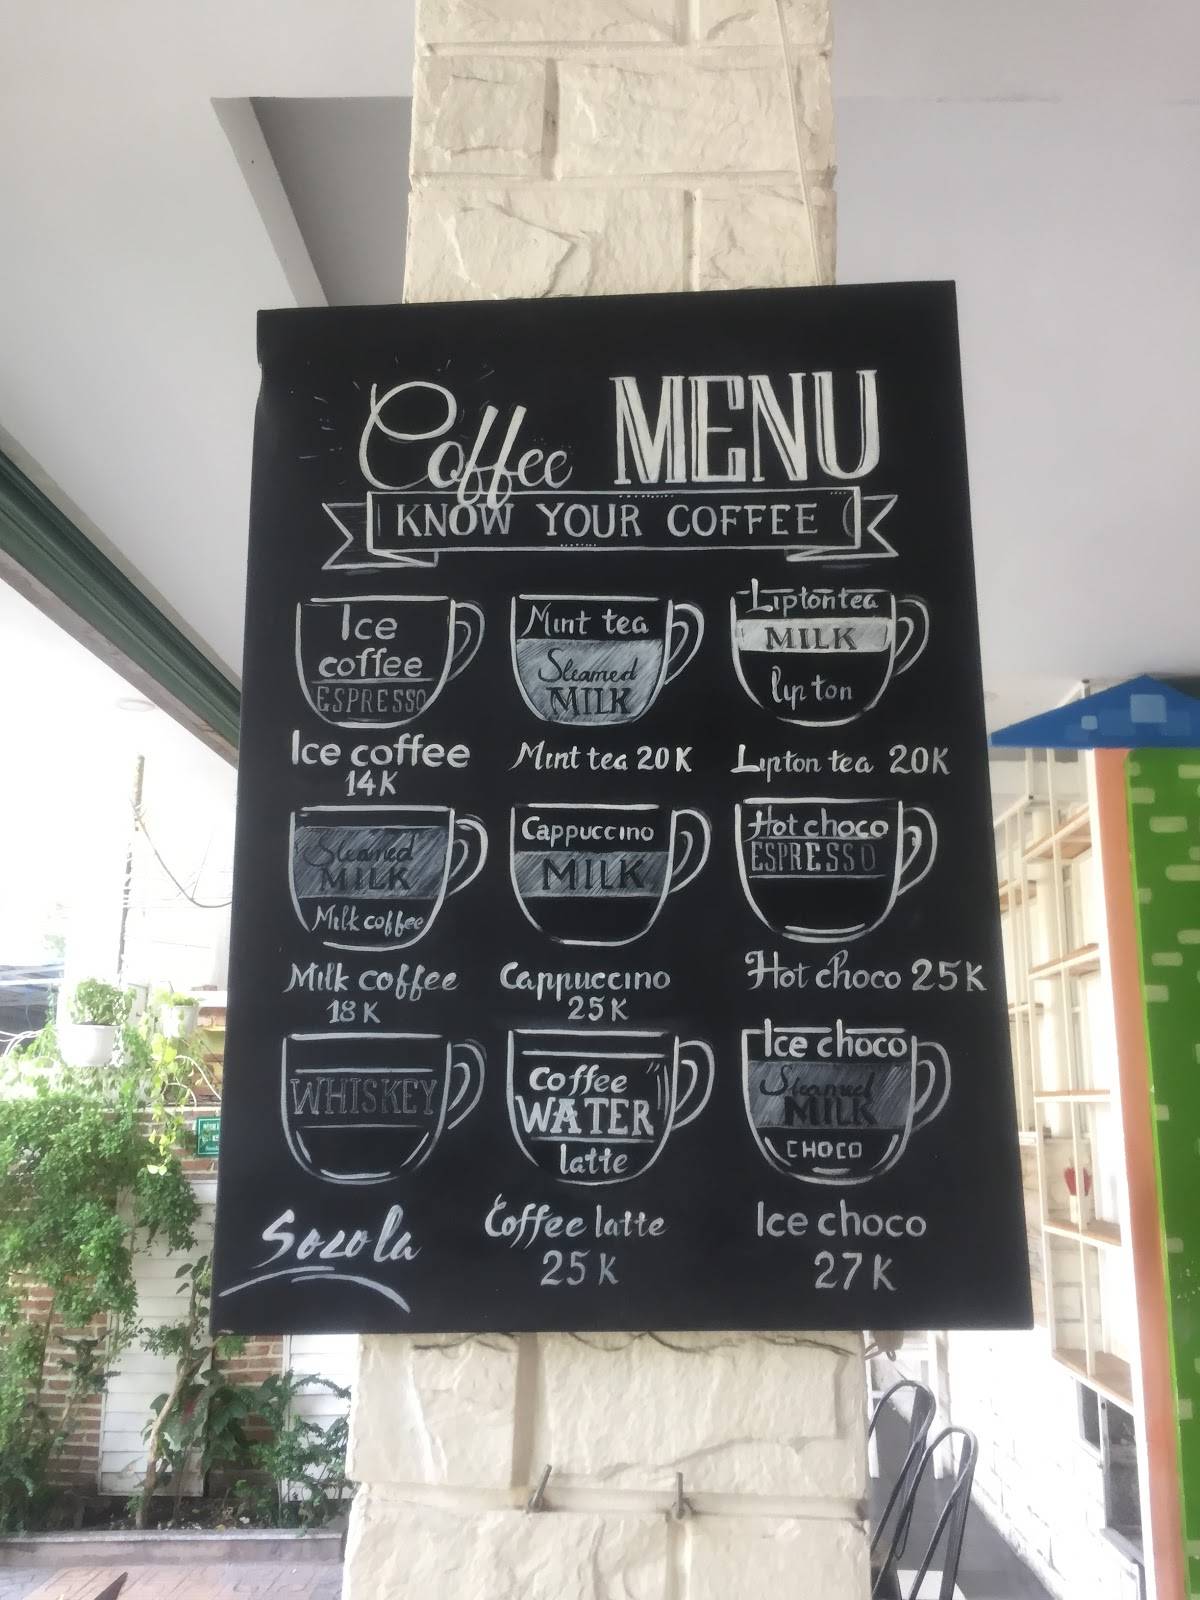 Coffee MENU
KNOW YOUR COFFEE
Ice
coffee
ESPRESSO
Ice coffee
14K
Mint tea
Steamed
MILK
Mint tea 20K
Lipton tea
MILK
lipton
Lipton tea 20K
Steamed
MILK
Milk coffee
Milk coffee
18K
Cappuccino
MILK
Cappuccino
25K
Hot choco
ESPRESSO
Hot choco 25K
WHISKEY
Sozola
Coffee
WATER
latte
Coffee latte
25K
Ice choco
Steamed
MILK
CHOCO
Ice choco
27K